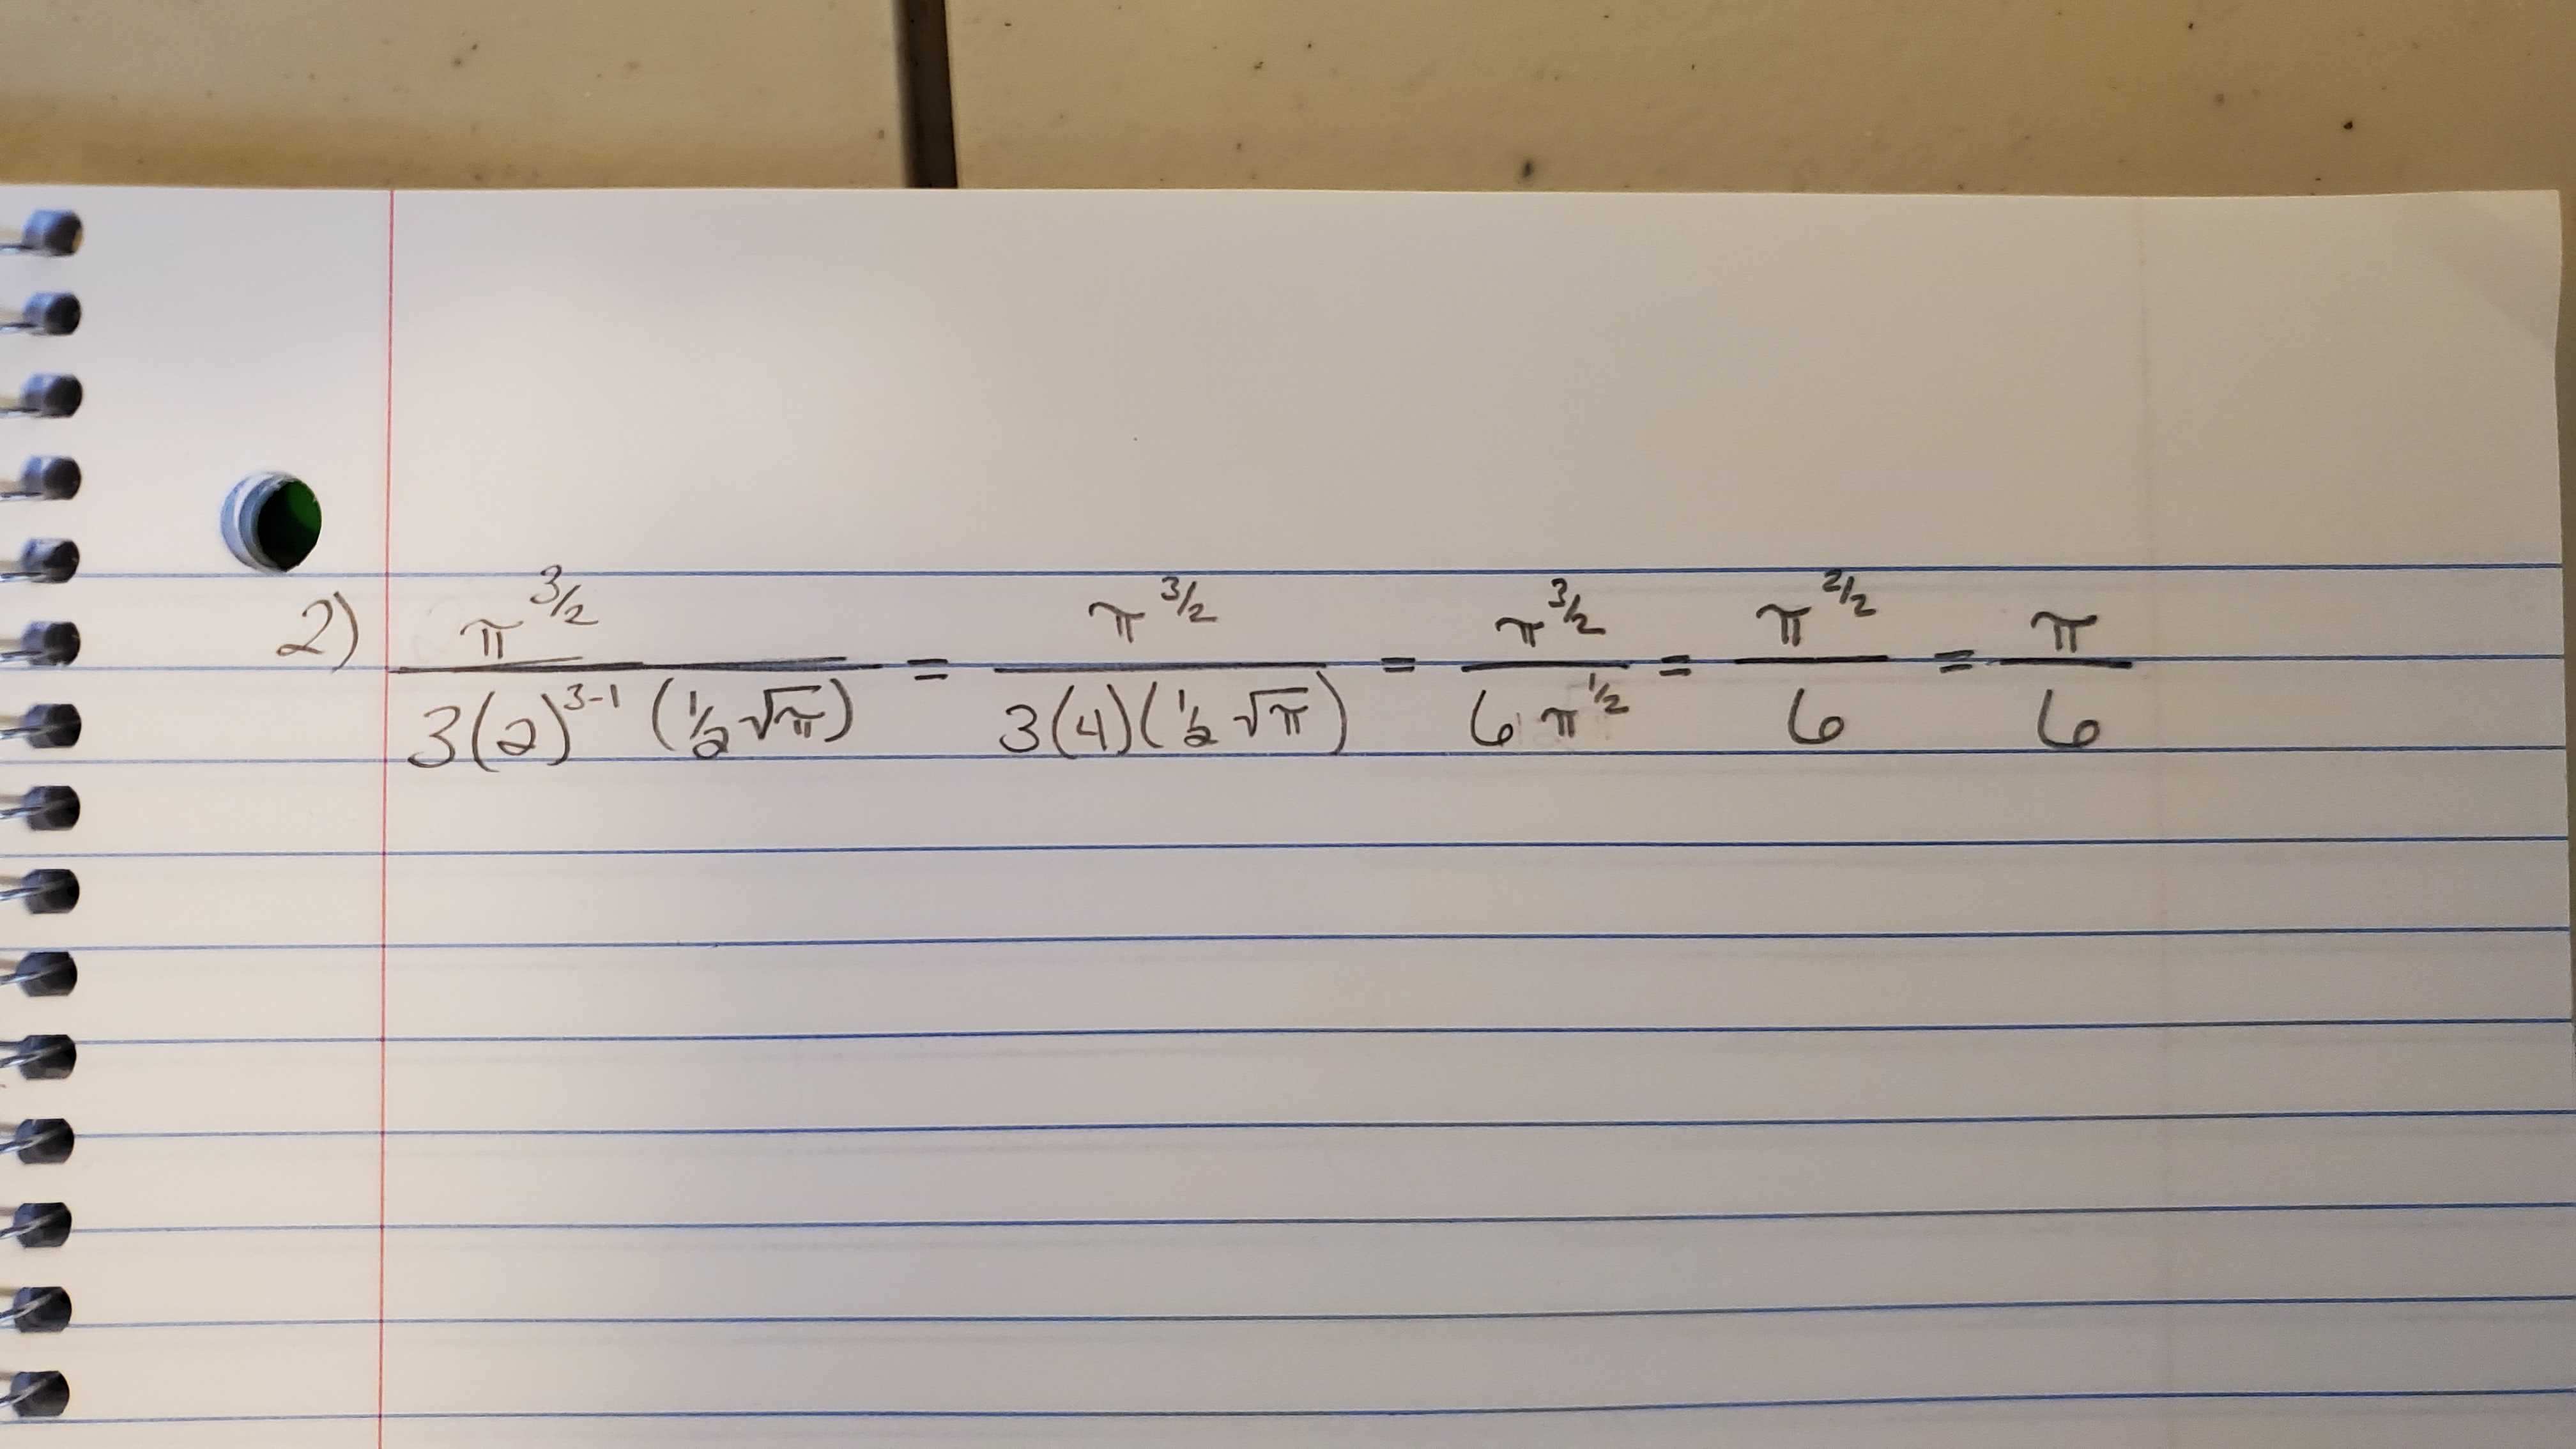 2) π^(3/2) / 3(2)^(3-1) (1/2 √π) = π^(3/2) / 3(4)(1/2 √π) = π^(3/2) / 6 π^(1/2) = π^(2/2) / 6 = π / 6